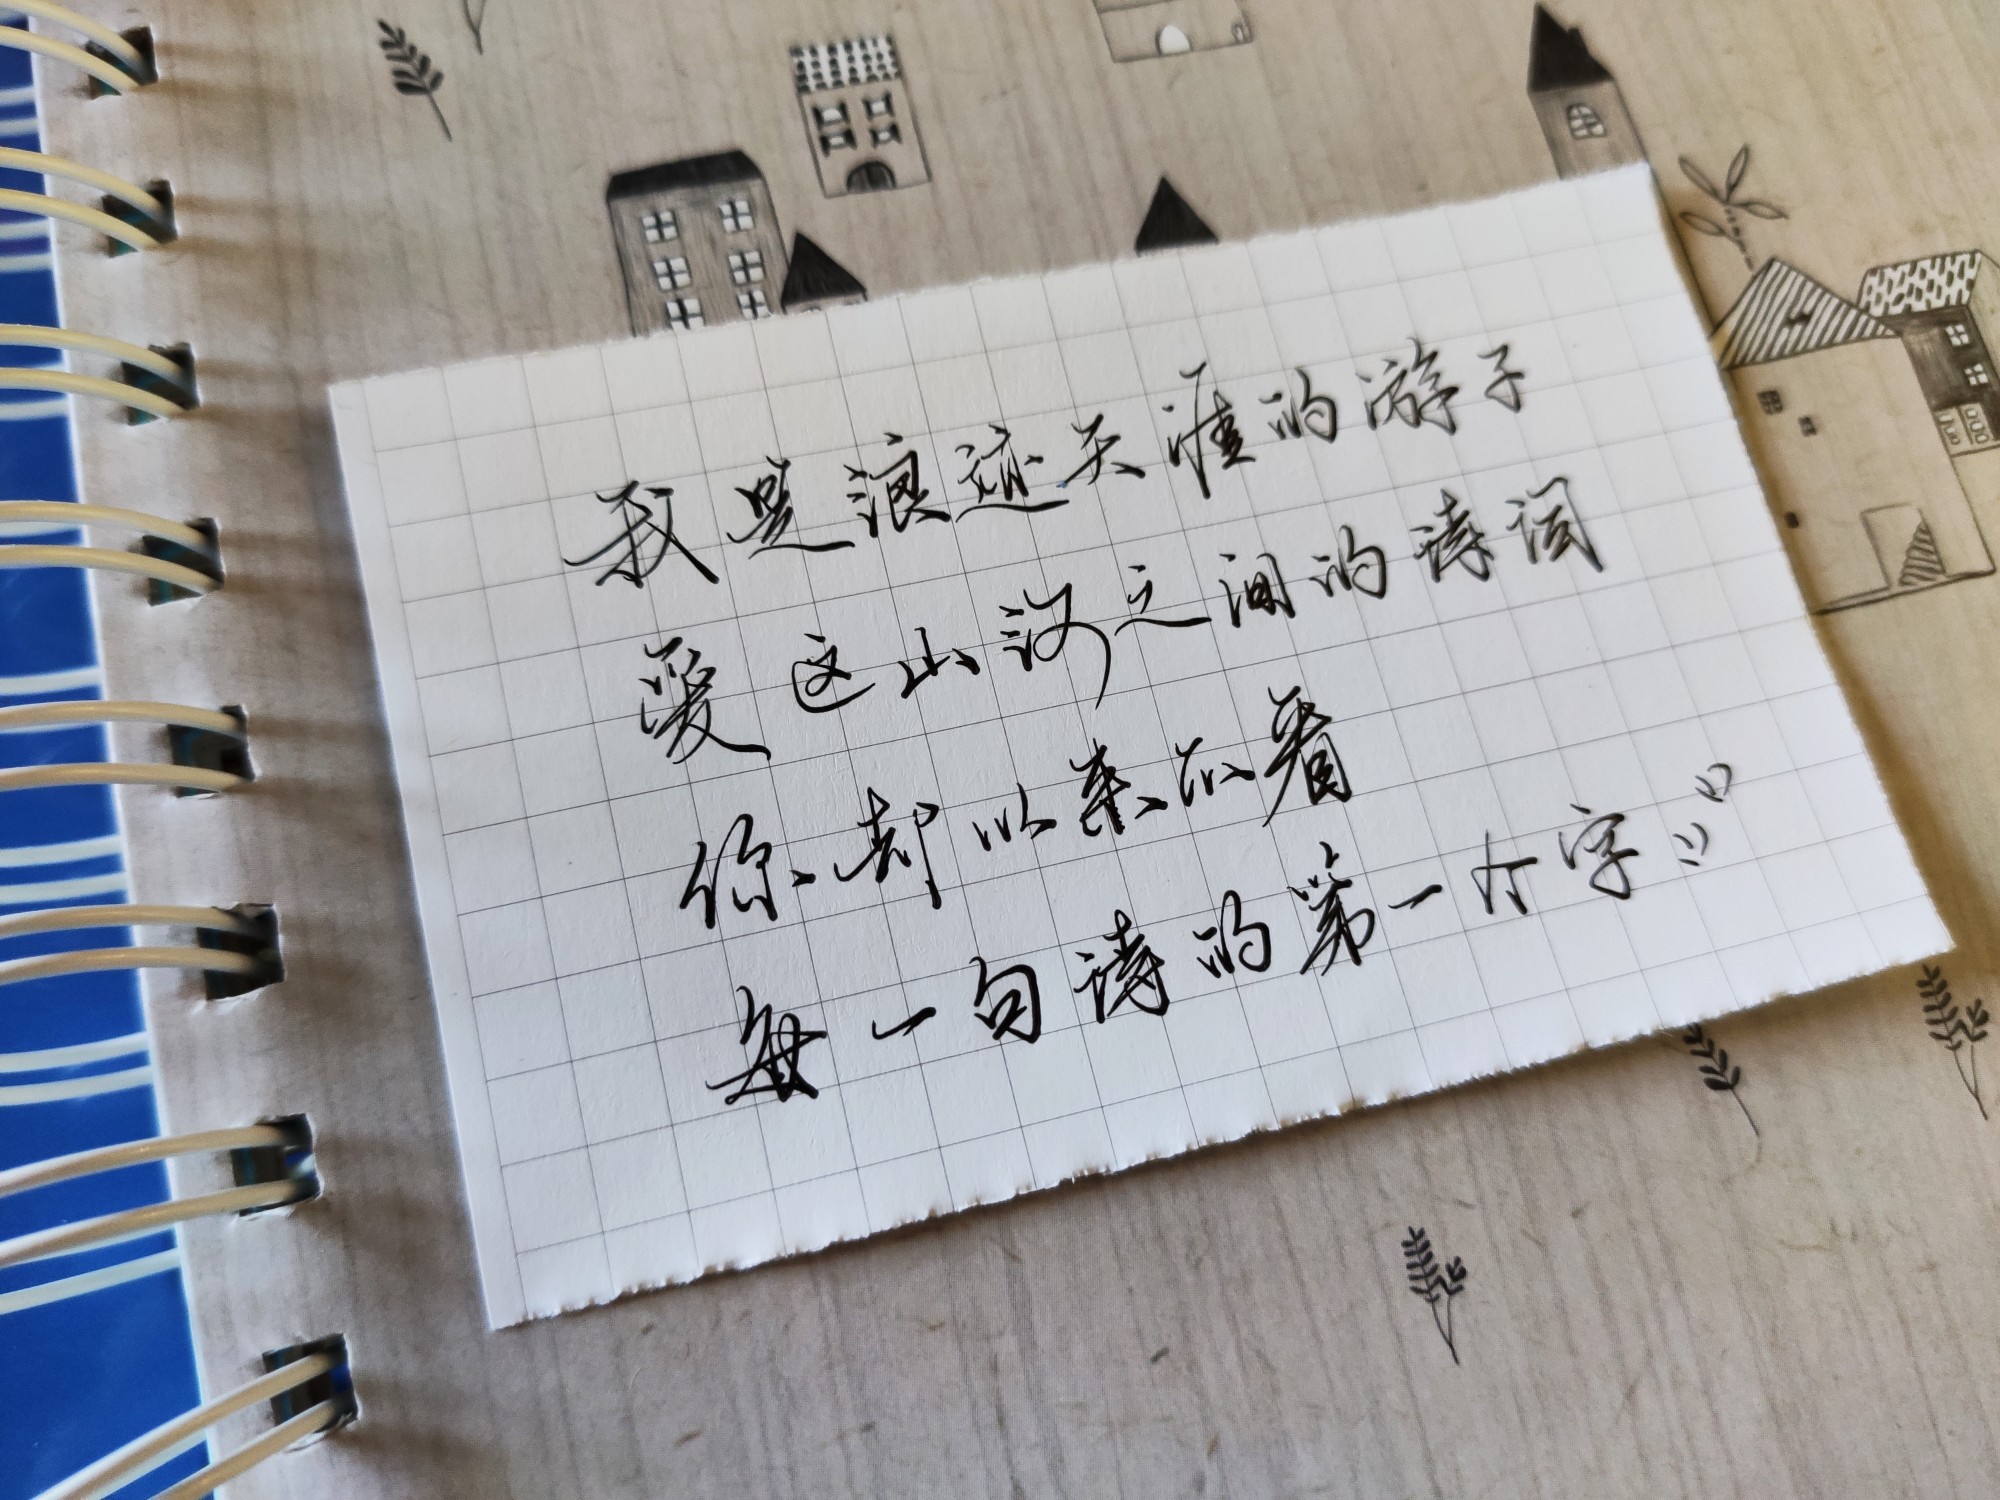 我是浪迹天涯的游子
爱这山河之间的诗词
你却从来不看
每一句诗的第一个字